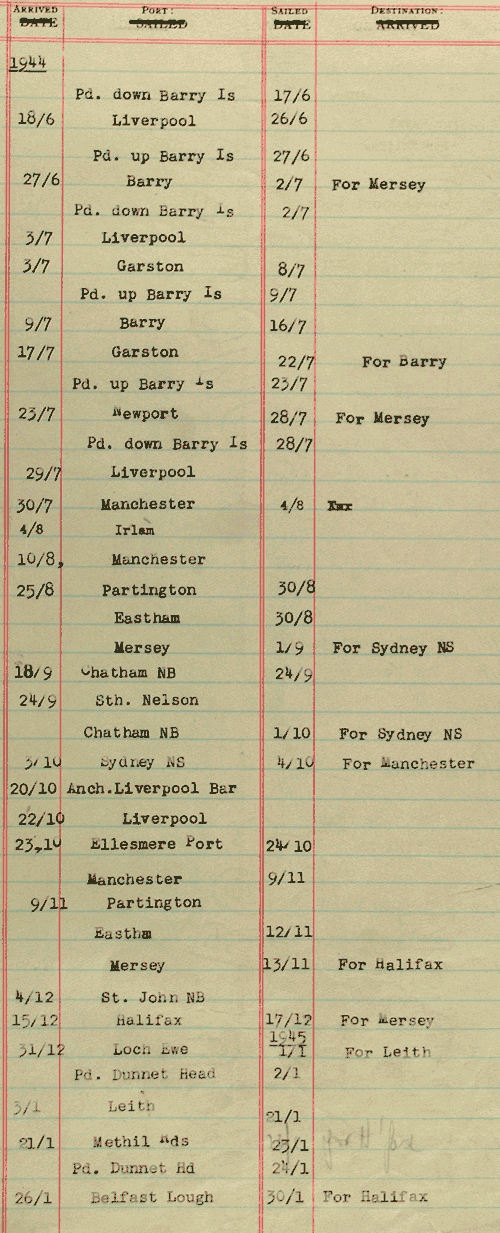 ARRIVED PORT: SAILED DESTINATION:
DATE SAILED DATE ARRIVED
1944
Pd. down Barry Is 17/6
18/6 Liverpool 26/6
Pd. up Barry Is 27/6
27/6 Barry 2/7 For Mersey
Pd. down Barry Is 2/7
3/7 Liverpool
3/7 Garston 8/7
Pd. up Barry Is 9/7
9/7 Barry 16/7
17/7 Garston 22/7 For Barry
Pd. up Barry Is 23/7
23/7 Newport 28/7 For Mersey
Pd. down Barry Is 28/7
29/7 Liverpool
30/7 Manchester 4/8
4/8 Irlam
10/8, Manchester
25/8 Partington 30/8
Eastham 30/8
Mersey 1/9 For Sydney NS
18/9 Chatham NB 24/9
24/9 Sth. Nelson
Chatham NB 1/10 For Sydney NS
3/10 Sydney NS 4/10 For Manchester
20/10 Anch.Liverpool Bar
22/10 Liverpool
23,10 Ellesmere Port 24/10
Manchester 9/11
9/11 Partington
Eastham 12/11
Mersey 13/11 For Halifax
4/12 St. John NB
15/12 Halifax 17/12 For Mersey
1945
31/12 Loch Ewe 1/1 For Leith
Pd. Dunnet Head 2/1
3/1 Leith 21/1
21/1 Methil Rds 23/1
Pd. Dunnet Hd 24/1
26/1 Belfast Lough 30/1 For Halifax